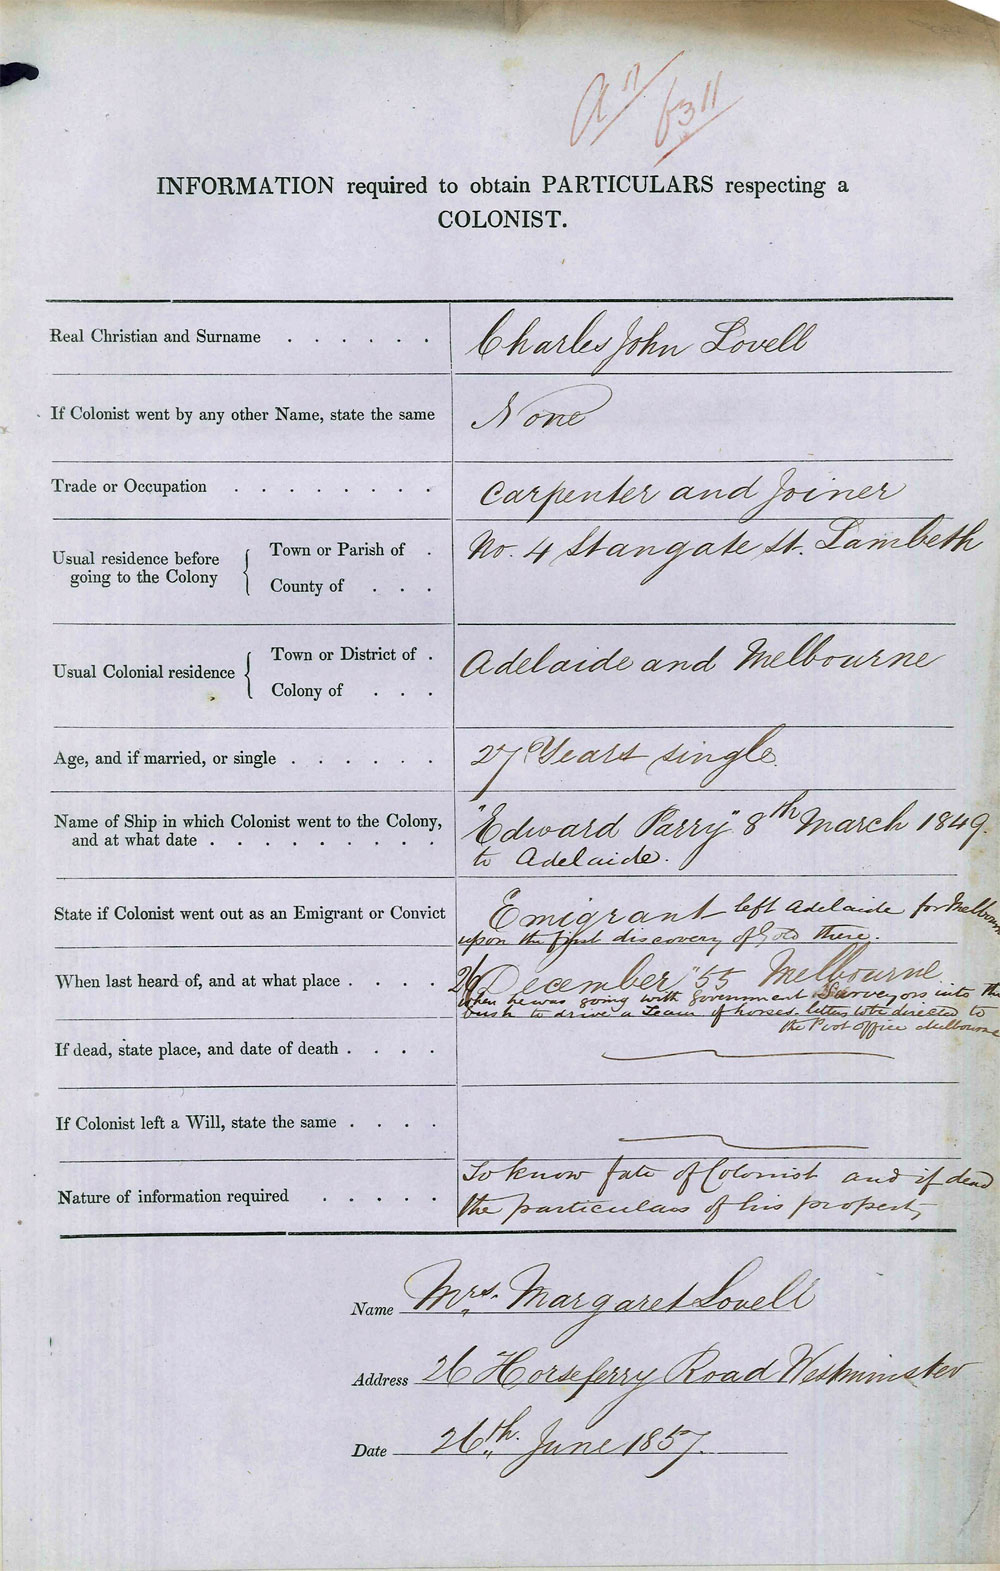 6311
INFORMATION required to obtain PARTICULARS respecting a
COLONIST.
Real Christian and Surname . . . . . .
Charles John Lovell
If Colonist went by any other Name, state the same
None
Trade or Occupation . . . . . . .
Carpenter and Joiner
Usual residence before going to the Colony { Town or Parish of .
County of . . .
No. 4 Stangate St. Lambeth
Usual Colonial residence { Town or District of .
Colony of . . .
Adelaide and Melbourne
Age, and if married, or single . . . . . .
27 Years single
Name of Ship in which Colonist went to the Colony,
and at what date . . . . . . . . .
"Edward Parry" 8th March 1849.
to Adelaide.
State if Colonist went out as an Emigrant or Convict
Emigrant left Adelaide for Melbourne
upon the first discovery of Gold there.
When last heard of, and at what place . . . .
26 December "55 Melbourne
when he was going with Government Surveyors into the
bush to drive a Team of horses. letters to be directed to
the Post Office Melbourne
If dead, state place, and date of death . . . .
If Colonist left a Will, state the same . . . .
Nature of information required . . . . .
To know fate of Colonist and if dead
the particulars of his property
Name Mrs. Margaret Lovell
Address 26 Horseferry Road Westminster
Date 26th. June 1857.